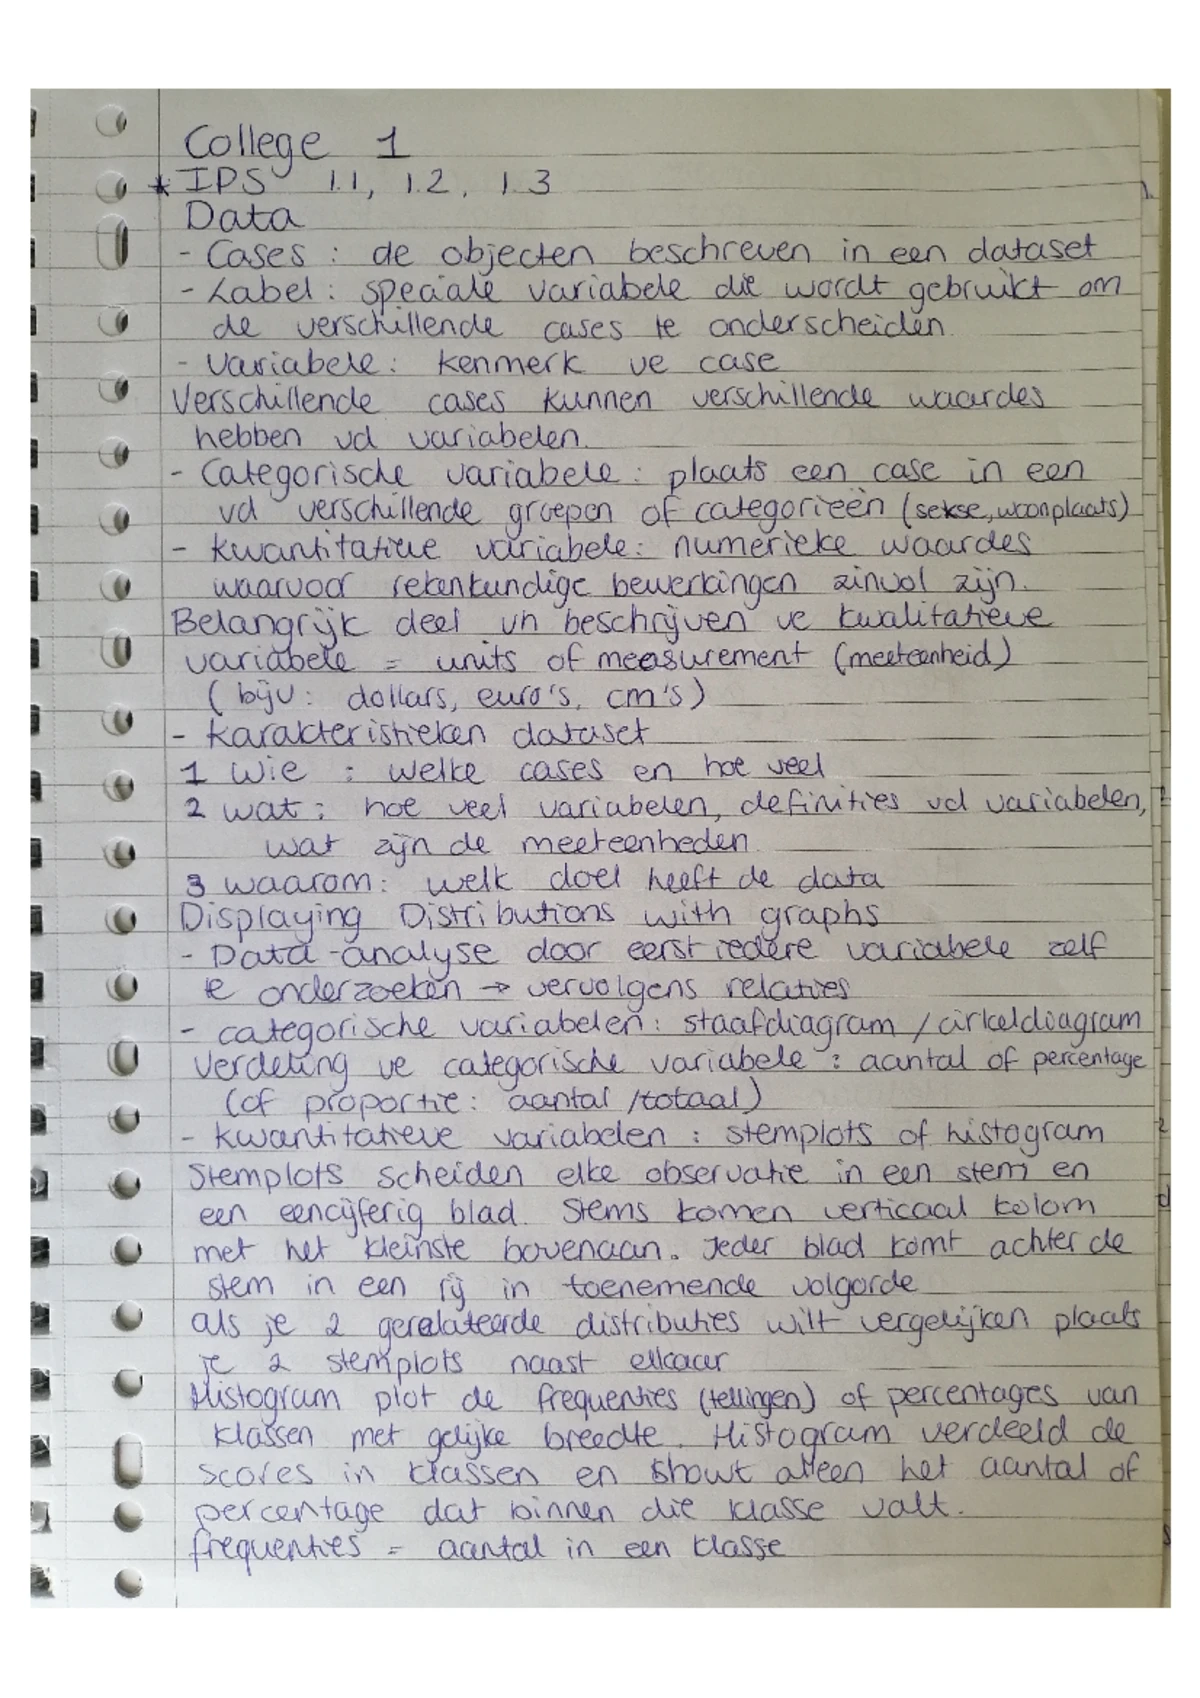 College 1
* IPS 1.1, 1.2, 1.3
Data
- Cases : de objecten beschreven in een dataset
- Label : speciale variabele die wordt gebruikt om
de verschillende cases te onderscheiden.
- Variabele : kenmerk ve case
Verschillende cases kunnen verschillende waardes
hebben vd variabelen.
- Categorische variabele : plaats een case in een
vd verschillende groepen of categorieën (sekse, woonplaats)
- Kwantitatieve variabele : numerieke waardes
waarvoor rekenkundige bewerkingen zinvol zijn.
Belangrijk deel vh beschrijven ve kwalitatieve
variabele = units of measurement (meeteenheid)
(bijv: dollars, euro's, cm's)
- Karakteristieken dataset
1 Wie : welke cases en hoe veel
2 wat : hoe veel variabelen, definities vd variabelen,
wat zijn de meeteenheden.
3 waarom : welk doel heeft de data
Displaying Distributions with graphs
- Data-analyse door eerst iedere variabele zelf
te onderzoeken → vervolgens relaties
- categorische variabelen : staafdiagram / cirkeldiagram
Verdeling ve categorische variabele : aantal of percentage
(of proportie : aantal / totaal)
- Kwantitatieve variabelen : stemplots of histogram
Stemplots scheiden elke observatie in een stem en
een eencijferig blad. Stems komen verticaal kolom
met het kleinste bovenaan. Ieder blad komt achter de
stem in een rij in toenemende volgorde
als je 2 gerelateerde distributies wilt vergelijken plaats
je 2 stemplots naast elkaar
Histogram plot de frequenties (tellingen) of percentages van
klassen met gelijke breedte. Histogram verdeeld de
scores in klassen en showt alleen het aantal of
percentage dat binnen die klasse valt.
frequenties = aantal in een klasse